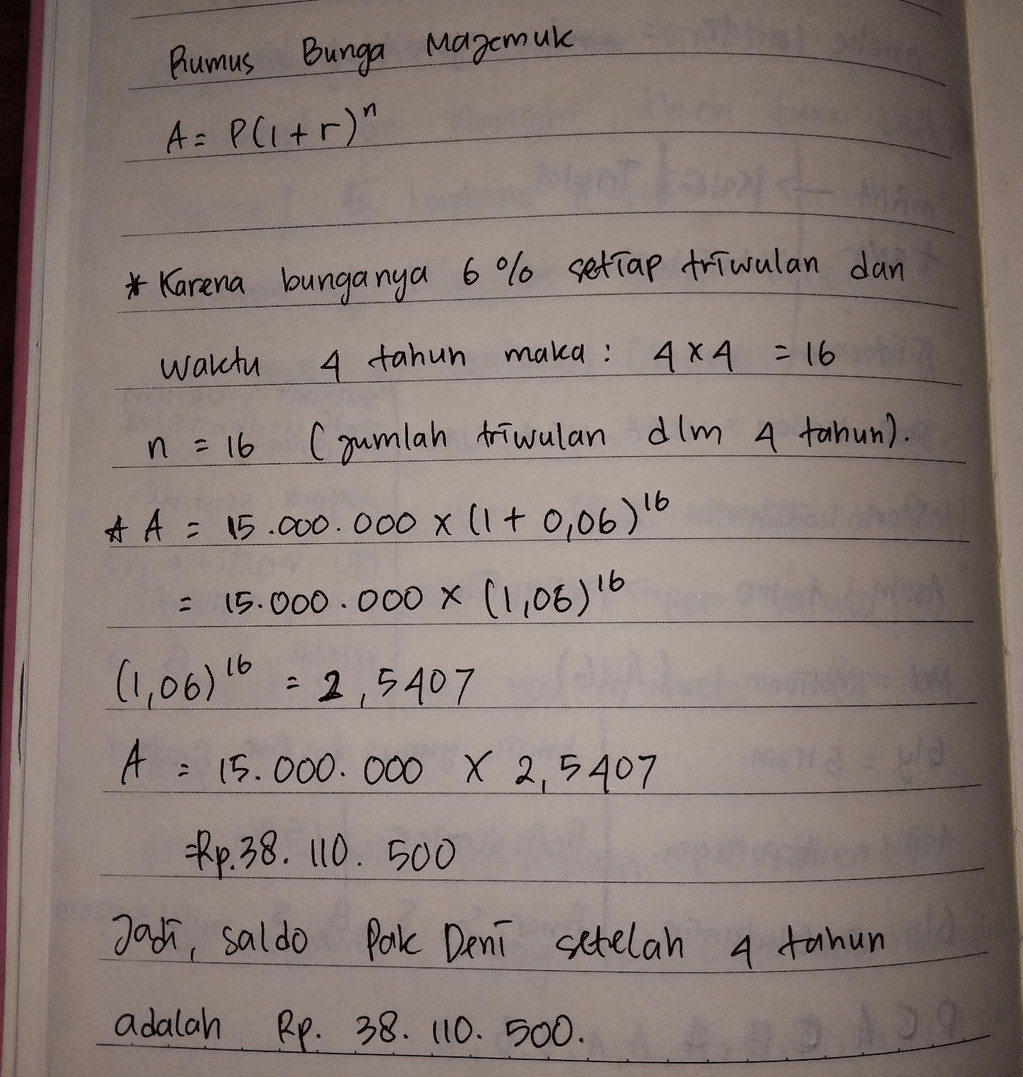 Rumus Bunga Majemuk
A = P(1+r)ⁿ
* Karena bunganya 6 % setiap triwulan dan
waktu 4 tahun maka : 4 x 4 = 16
n = 16 (jumlah triwulan dlm 4 tahun).
* A = 15.000.000 x (1 + 0,06)¹⁶
= 15.000.000 x (1,06)¹⁶
(1,06)¹⁶ = 2,5407
A = 15.000.000 x 2,5407
=Rp.38.110.500
Jadi, saldo Pak Deni setelah 4 tahun
adalah Rp. 38.110.500.